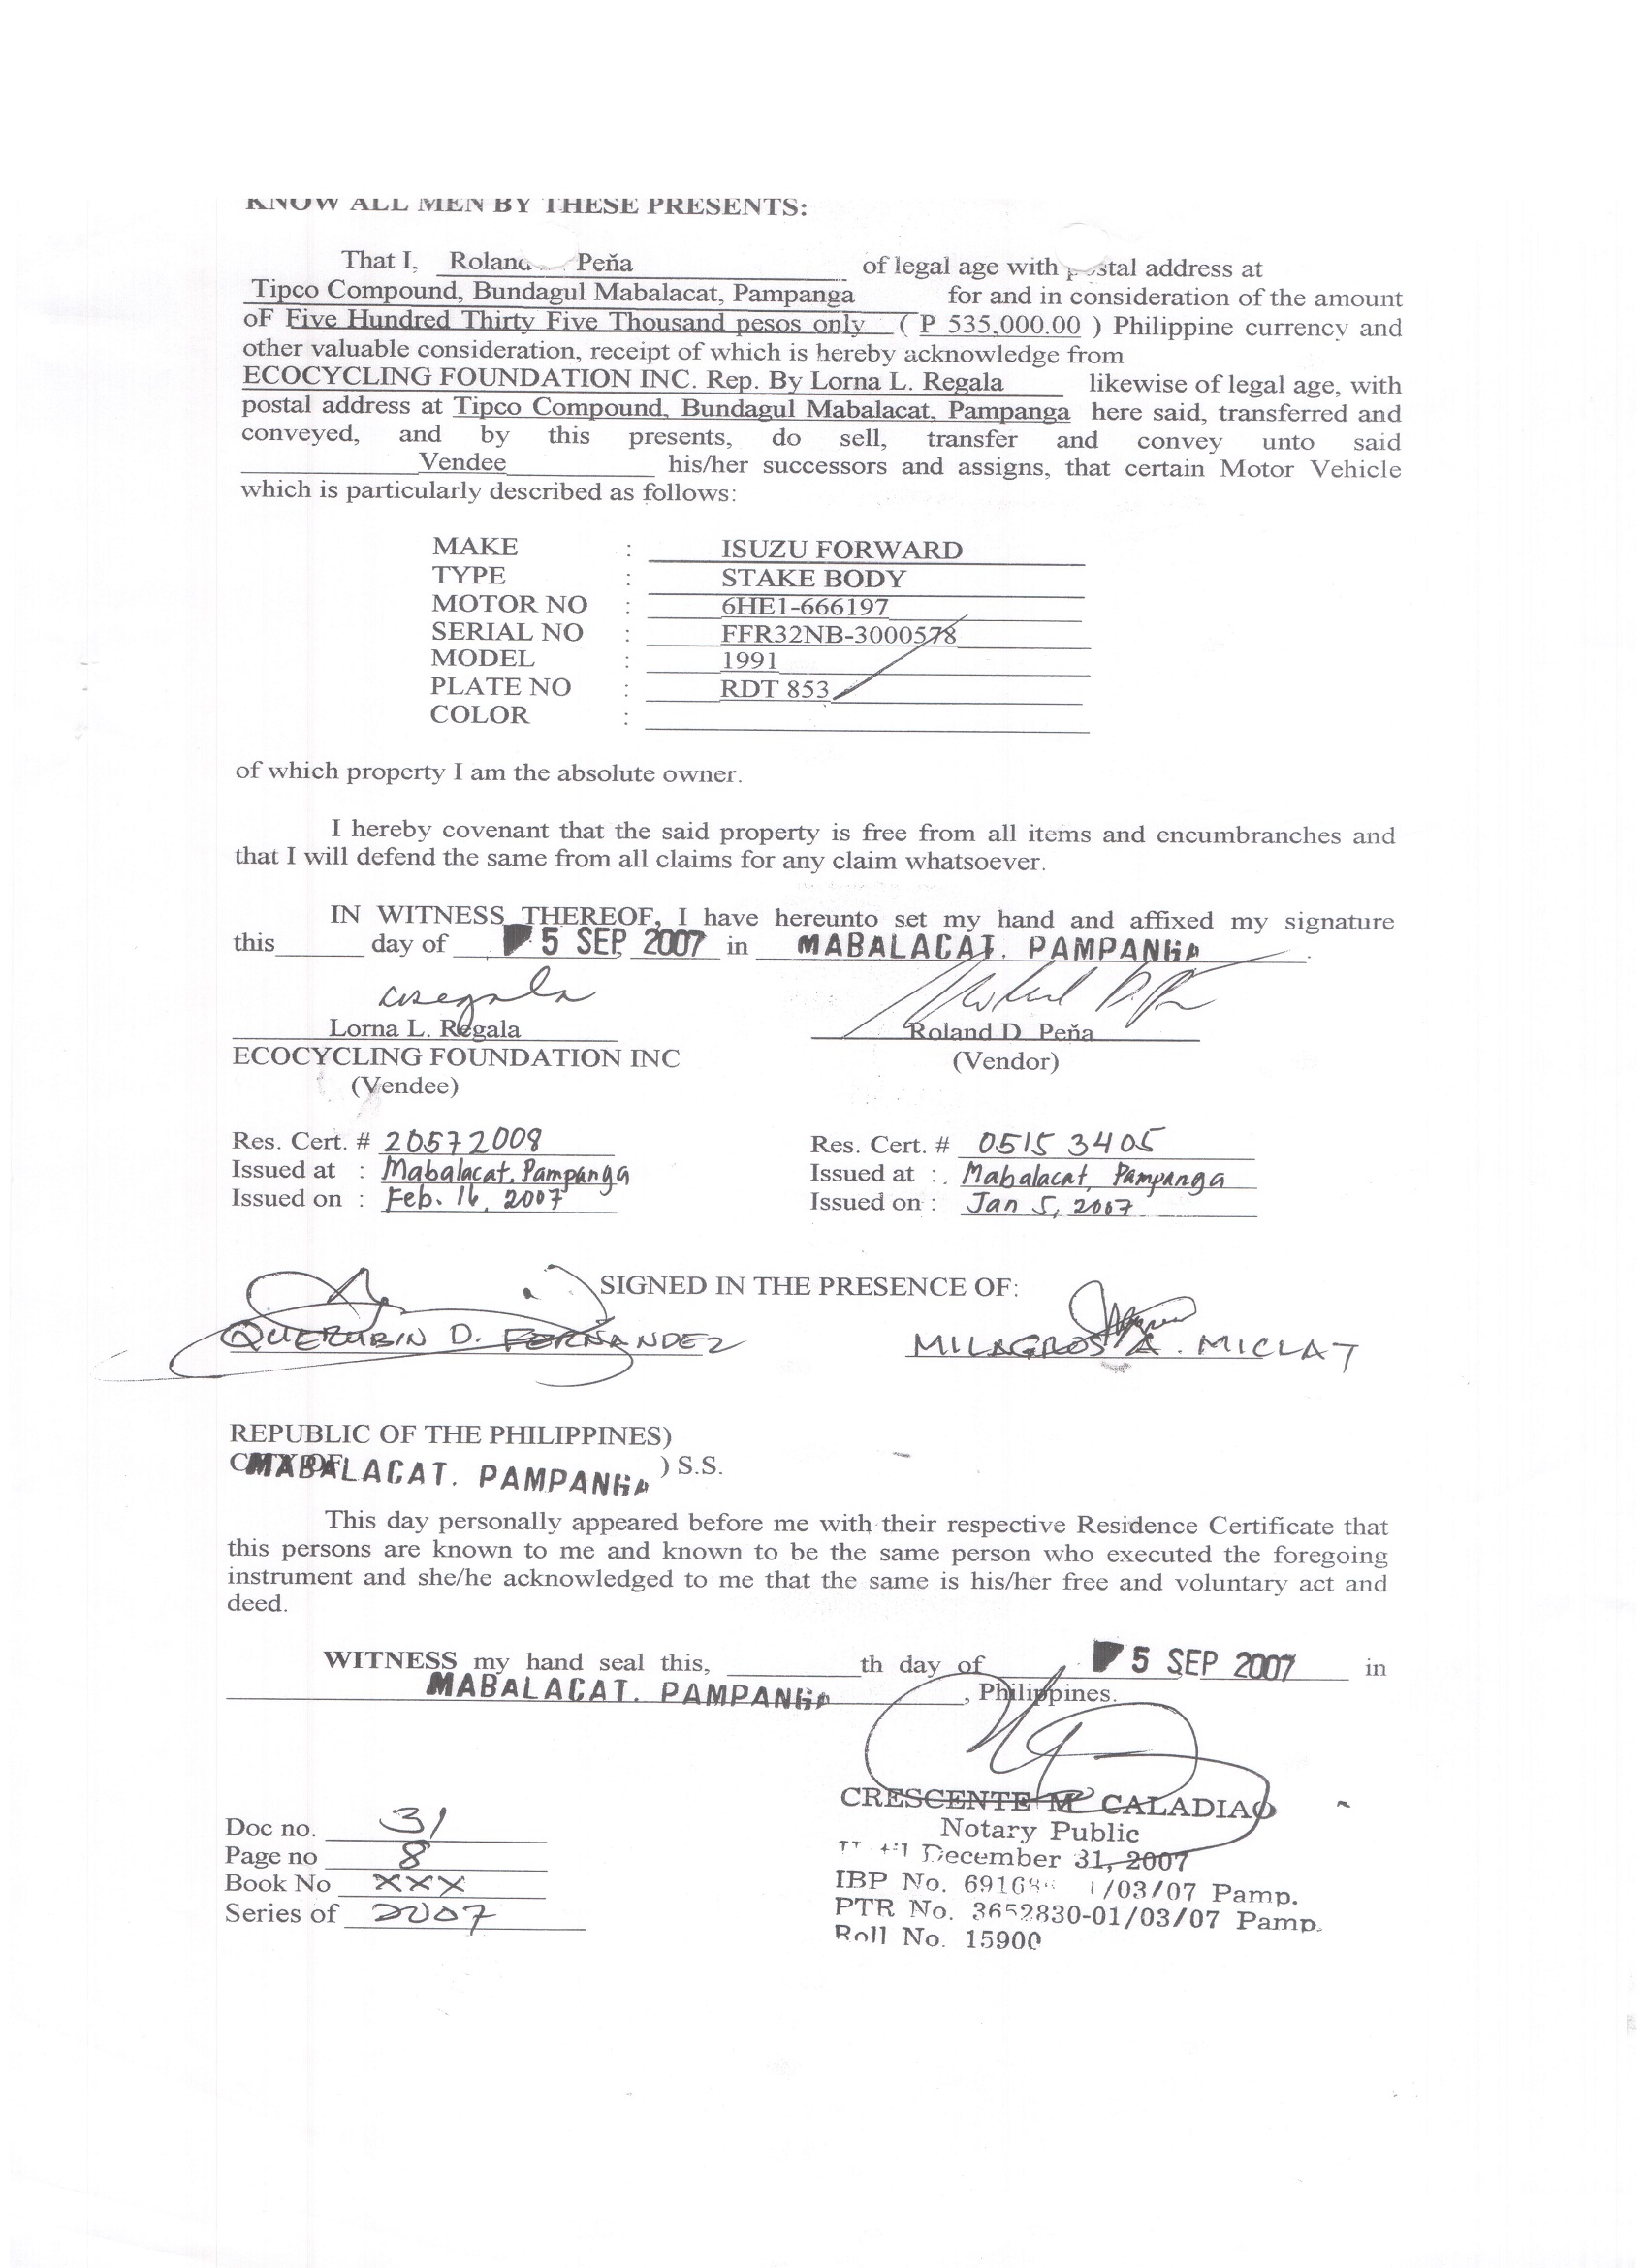 KNOW ALL MEN BY THESE PRESENTS:
That I, Roland Peňa of legal age with postal address at
Tipco Compound, Bundagul Mabalacat, Pampanga for and in consideration of the amount
oF Five Hundred Thirty Five Thousand pesos only ( P 535,000.00 ) Philippine currency and
other valuable consideration, receipt of which is hereby acknowledge from
ECOCYCLING FOUNDATION INC. Rep. By Lorna L. Regala likewise of legal age, with
postal address at Tipco Compound, Bundagul Mabalacat, Pampanga here said, transferred and
conveyed, and by this presents, do sell, transfer and convey unto said
Vendee his/her successors and assigns, that certain Motor Vehicle
which is particularly described as follows:
MAKE : ISUZU FORWARD
TYPE : STAKE BODY
MOTOR NO : 6HE1-666197
SERIAL NO : FFR32NB-3000578
MODEL : 1991
PLATE NO : RDT 853
COLOR :
of which property I am the absolute owner.
I hereby covenant that the said property is free from all items and encumbranches and
that I will defend the same from all claims for any claim whatsoever.
IN WITNESS THEREOF, I have hereunto set my hand and affixed my signature
this day of 5 SEP 2007 in MABALACAT, PAMPANGA.
Lorna L. Regala Roland D. Peňa
ECOCYCLING FOUNDATION INC (Vendor)
(Vendee)
Res. Cert. # 20572008 Res. Cert. # 0515 3405
Issued at : Mabalacat, Pampanga Issued at : Mabalacat, Pampanga
Issued on : Feb. 16, 2007 Issued on : Jan 5, 2007
SIGNED IN THE PRESENCE OF:
QUERUBIN D. FERNANDEZ MILAGROS A. MICLAT
REPUBLIC OF THE PHILIPPINES)
CITY OF MABALACAT, PAMPANGA ) S.S.
This day personally appeared before me with their respective Residence Certificate that
this persons are known to me and known to be the same person who executed the foregoing
instrument and she/he acknowledged to me that the same is his/her free and voluntary act and
deed.
WITNESS my hand seal this, th day of 5 SEP 2007 in
MABALACAT, PAMPANGA, Philippines.
CRESCENTE M CALADIAO
Notary Public
Until December 31, 2007
IBP No. 1/03/07 Pamp.
PTR No. 3652830-01/03/07 Pamp.
Roll No. 15900
Doc no. 31
Page no 8
Book No XXX
Series of 2007